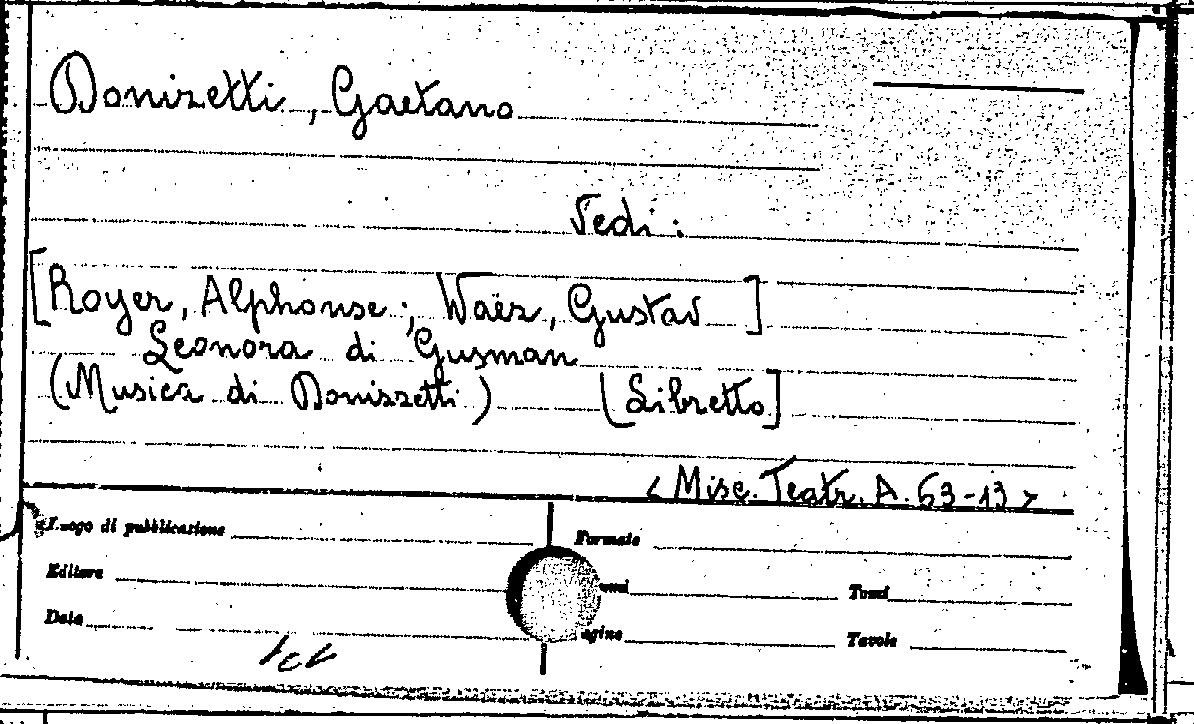 Donizetti, Gaetano
Vedi:
[Royer, Alphonse; Waëz, Gustav ]
Leonora di Gusman
(Musica di Donizzetti) [Libretto]
<Misc. Teatr. A. 63-13>
Luogo di pubblicazione Formato
Editore Tomi
Data agine Tavole